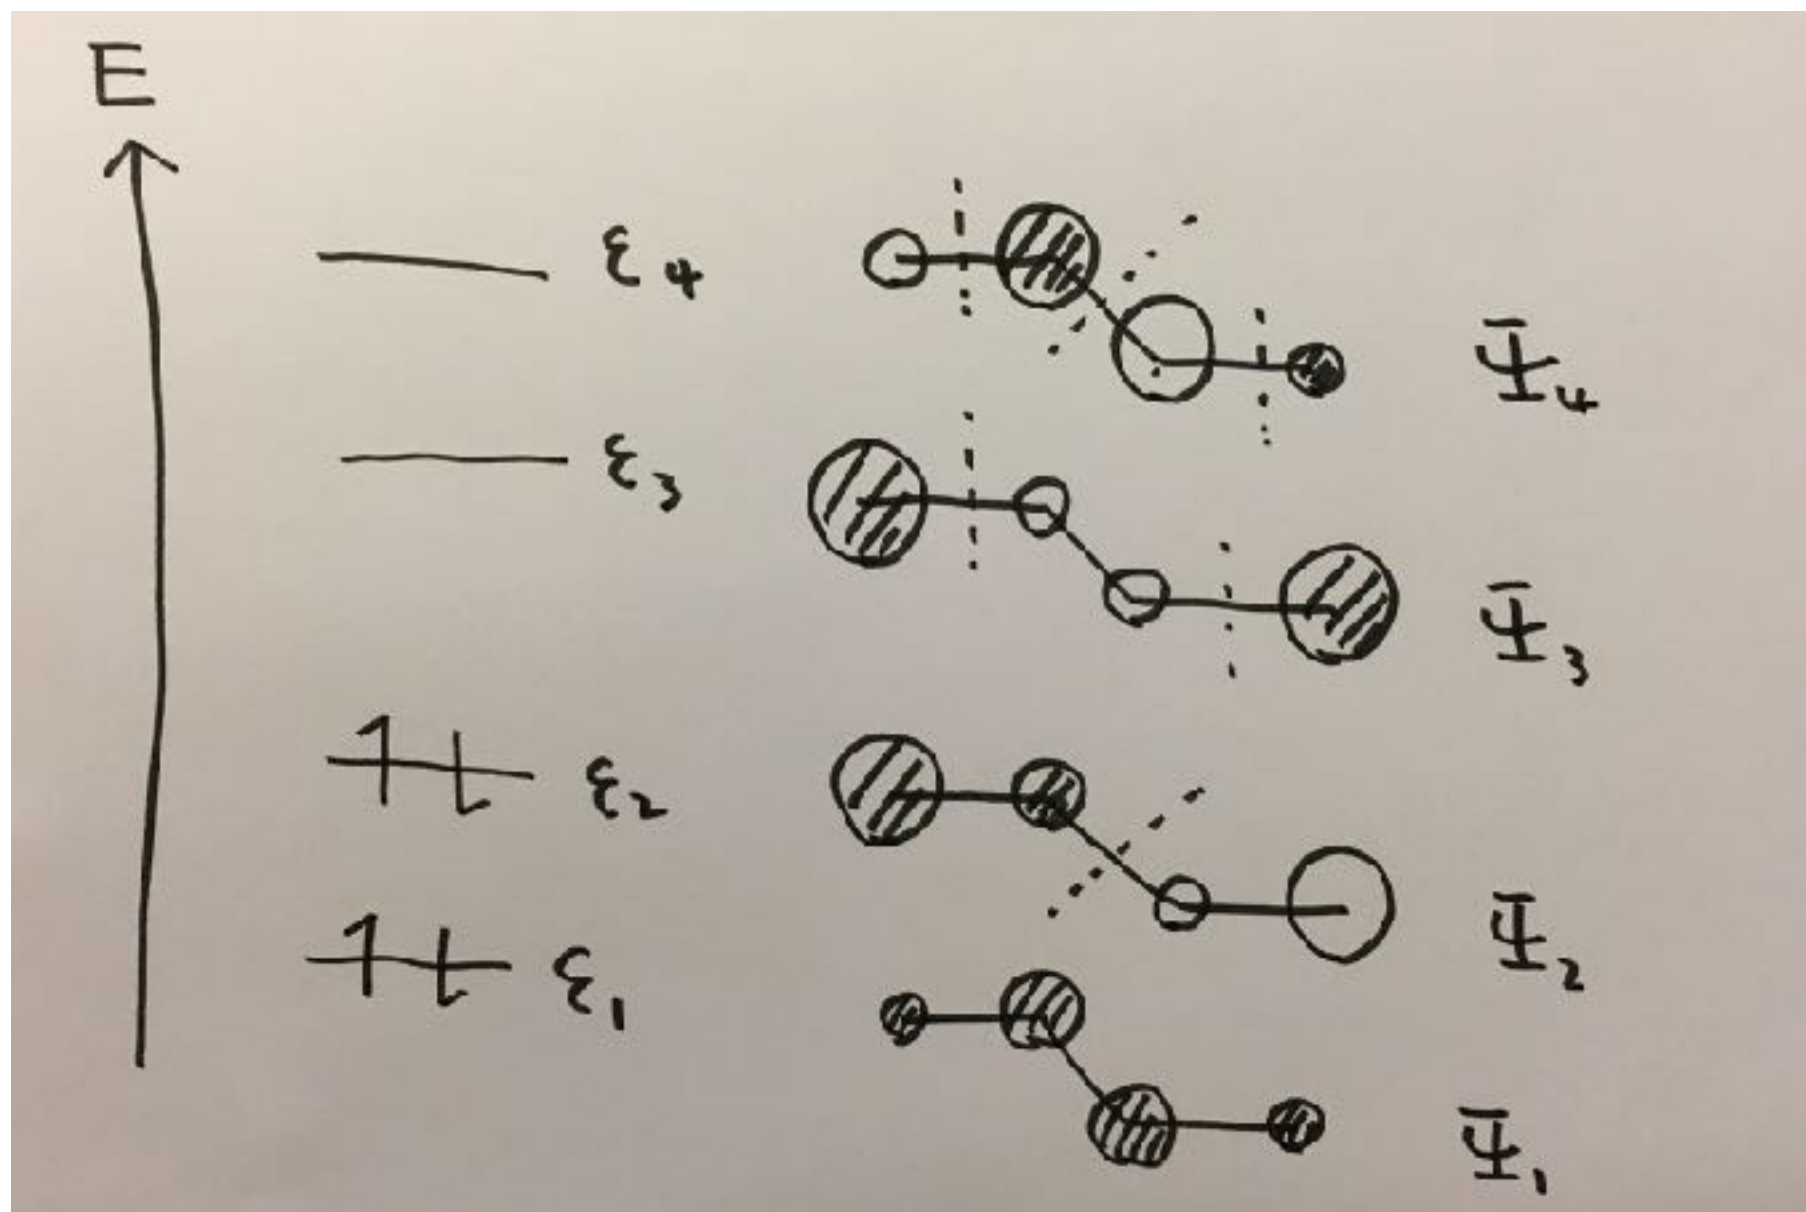 E
ε4
Ψ4
ε3
Ψ3
ε2
Ψ2
ε1
Ψ1